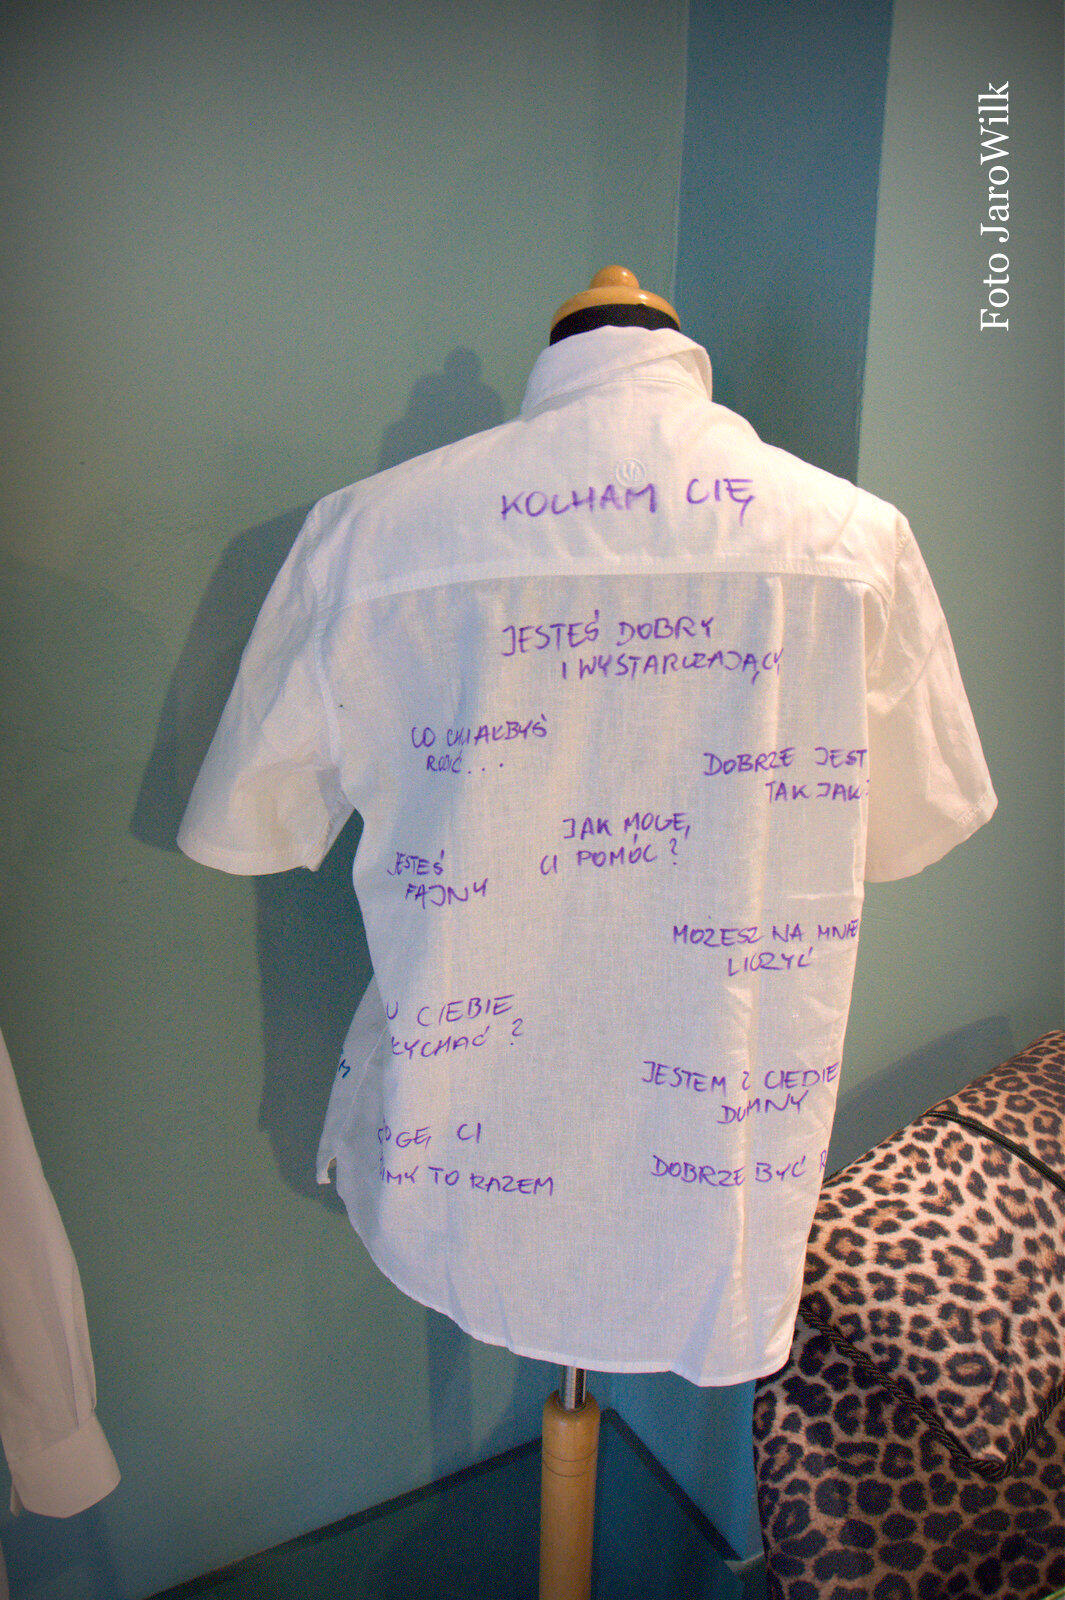 Foto JaroWilk
KOCHAM CIĘ
JESTEŚ DOBRY
I WYSTARCZAJĄCY
CO CHCIAŁBYŚ
ROBIĆ...
DOBRZE JEST
TAK JAK
JAK MOGĘ
CI POMÓC?
JESTEŚ
FAJNY
MOŻESZ NA MNIE
LICZYĆ
U CIEBIE
SŁYCHAĆ?
JESTEM Z CIEBIE
DUMNY
OGĘ CI
MY TO RAZEM
DOBRZE BYĆ